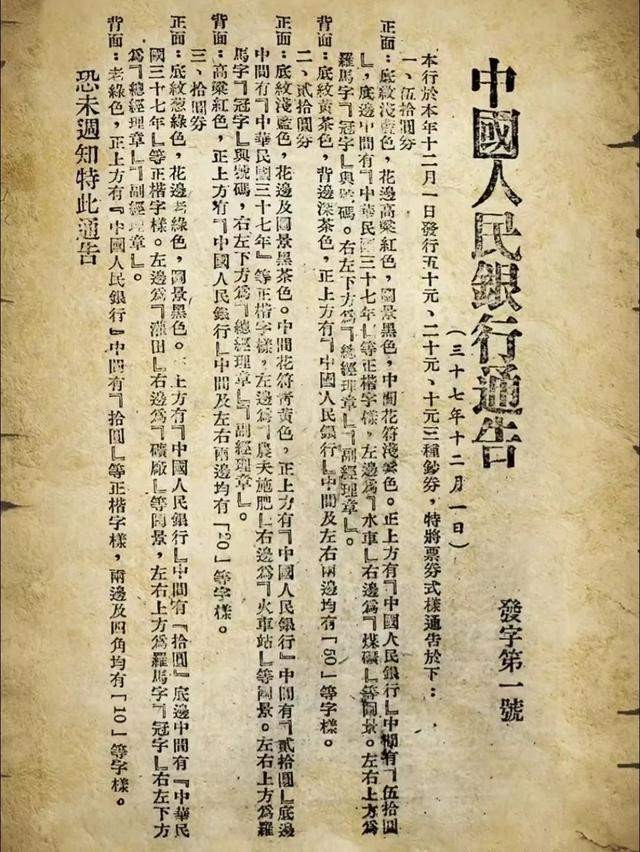 中國人民銀行通告
(三十七年十二月一日)
發字第一號
本行於本年十二月一日發行五十元、二十元、十元三種鈔券，特將票券式樣通告於下：
一、伍拾圓券
正面：底紋淺藍色，花邊高粱紅色，圖景黑色，中間花符淺色。正上方有『中國人民銀行』中間有『伍拾圓
』，底邊中間有『中華民國三十七年』等正楷字樣，左邊爲『水車』右邊爲『煤礦』等圖景。左右上方爲
羅馬字『冠字』與號碼。右左下方爲『總經理章』『副經理章』。
背面：底紋黃茶色，背邊深茶色，正上方有『中國人民銀行』中間及左右兩邊均有「50」等字樣。
二、貳拾圓券
正面：底紋淺藍色，花邊及圖景黑茶色。中間花符青黃色，正上方有『中國人民銀行』中間有『貳拾圓』底邊
中間有『中華民國三十七年』等正楷字樣，左邊爲『農夫施肥』右邊爲『火車站』等圖景。左右上方爲羅
馬字『冠字』與號碼，右左下方爲『總經理章』『副經理章』。
背面：高粱紅色，正上方有『中國人民銀行』中間及左右兩邊均有「20」等字樣。
三、拾圓券
正面：底紋葱綠色，花邊老綠色，圖景黑色。上方有『中國人民銀行』中間有『拾圓』底邊中間有『中華民
國三十七年』等正楷字樣。左邊爲『灌田』右邊爲『礦廠』等圖景，左右上方爲羅馬字『冠字』右左下方
爲『總經理章』『副經理章』。
背面：老綠色，正上方有『中國人民銀行』中間有『拾圓』等正楷字樣，兩邊及四角均有「10」等字樣。
恐未週知特此通告